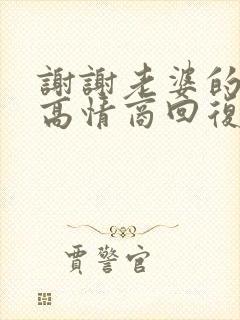 謝謝老婆的
高情商回復
賈警官